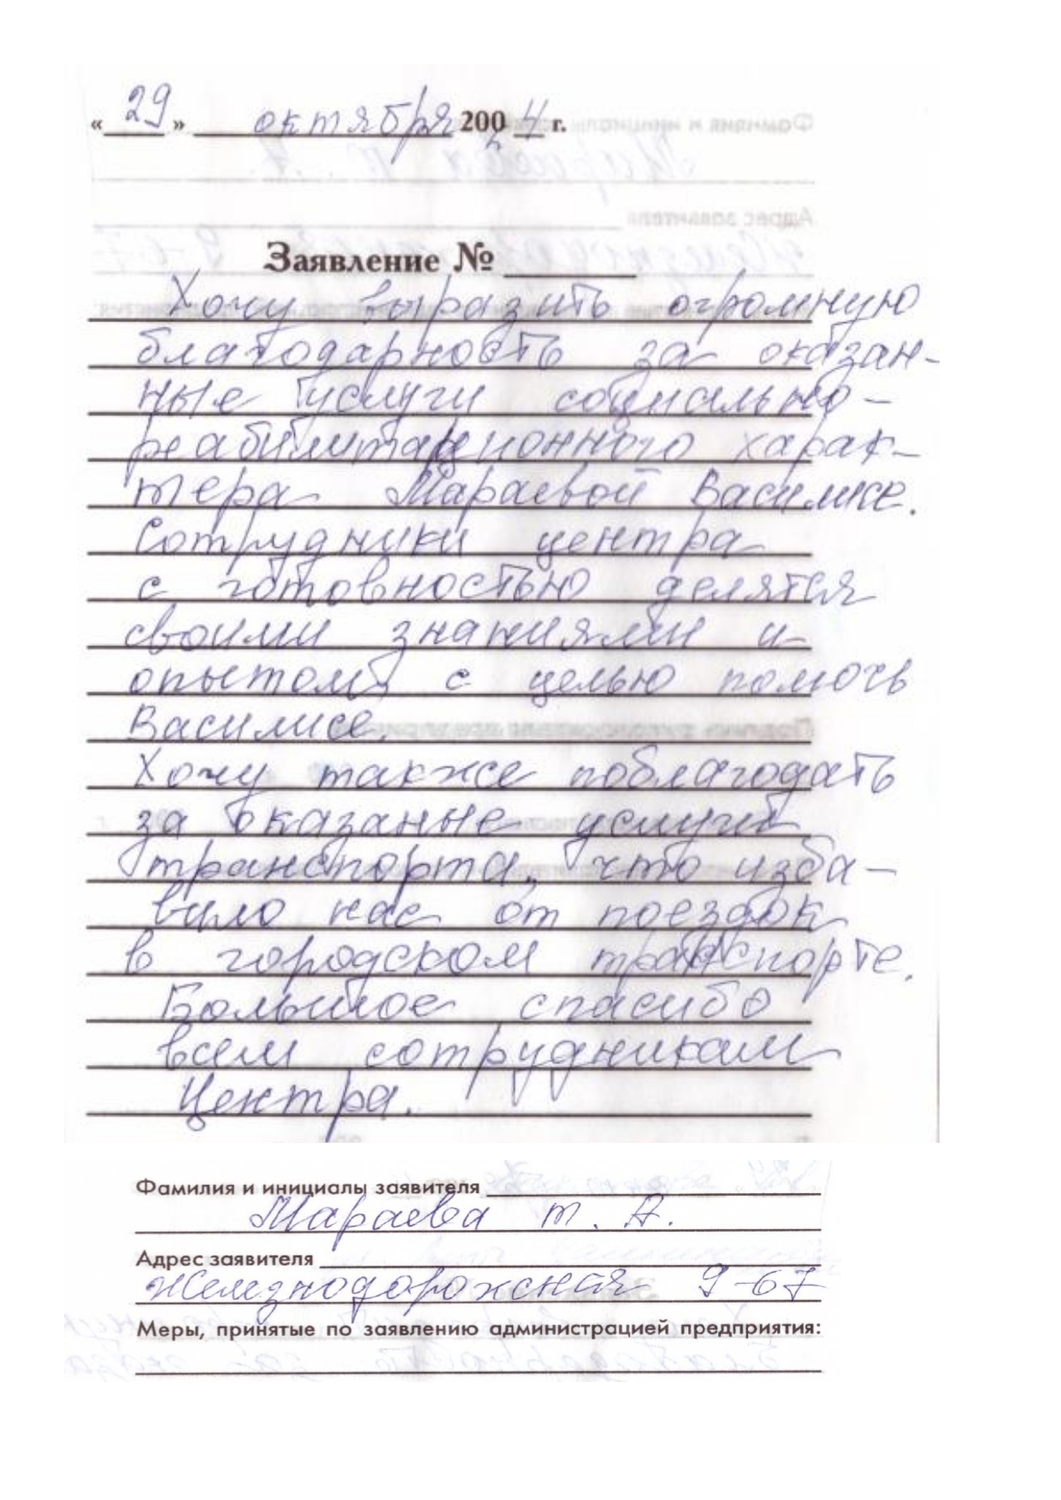 «29» октября 2024 г.
Заявление №
Хочу выразить огромную
благодарность за оказан-
ные услуги социально-
реабилитационного харак-
тера Мараевой Василисе.
Сотрудники центра
с готовностью делятся
своими знаниями и
опытом с целью помочь
Василисе.
Хочу также поблагодать
за оказаные услуги
транспорта, что изба-
вило нас от поездок
в городском транспорте.
Большое спасибо
всем сотрудникам
Центра.
Фамилия и инициалы заявителя
Мараева Т. А.
Адрес заявителя
Железнодорожная 9-67
Меры, принятые по заявлению администрацией предприятия: